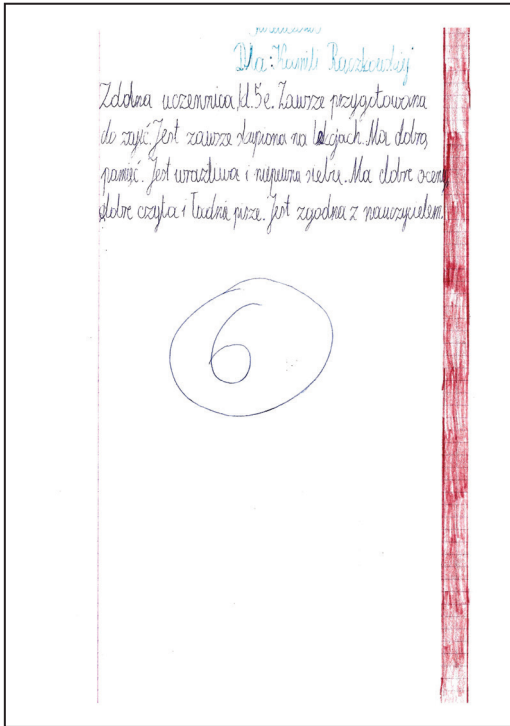 Dla: Kamili Raczkowskiej
Zdolna uczennica kl. 5e. Zawsze przygotowana
do zajęć. Jest zawsze skupiona na lekcjach. Ma dobrą
pamięć. Jest wrażliwa i niepewna siebie. Ma dobre oceny
dobrze czyta i ładnie pisze. Jest zgodna z nauczycielem.
6